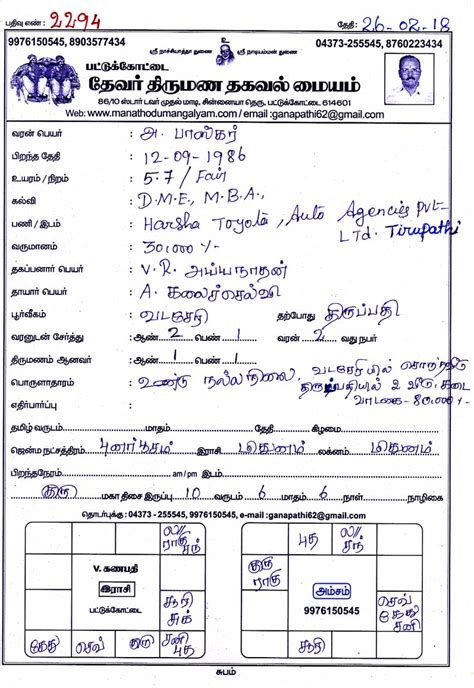 பதிவு எண் : 2294 தேதி : 26-02-18
9976150545, 8903577434 ஸ்ரீ நாச்சியாத்தா துணை உ ஸ்ரீ நாடியம்மன் துணை 04373-255545, 8760223434
பட்டுக்கோட்டை
தேவர் திருமண தகவல் மையம்
86/10 ஸ்டார் டவர் முதல் மாடி, சின்னையா தெரு, பட்டுக்கோட்டை 614601
Web: www.manathodumangalyam.com / email :ganapathi62@gmail.com
வரன் பெயர் : அ. பாஸ்கர்
பிறந்த தேதி : 12-09-1986
உயரம் / நிறம் : 5.7 / Fair
கல்வி : D.M.E, M.B.A.,
பணி / இடம் : Harsha Toyota, Auto Agencies Pvt-
LTd. Tirupathi
வருமானம் : 30,000/-
தகப்பனார் பெயர் : V.R. அய்யநாதன்
தாயார் பெயர் : A. கலைச்செல்வி
பூர்வீகம் : வடசேரி தற்போது திருப்பதி
வரனுடன் சேர்த்து : ஆண் 2 பெண் 1 வரன் 2 வது நபர்
திருமணம் ஆனவர் : ஆண் 1 பெண் 1
பொருளாதாரம் : உண்டு நல்லநிலை, வடசேரியில் சொந்தவீடு
திருப்பதியில் 2 வீடு, கடை
வாடகை- 80,000/-
எதிர்பார்ப்பு :
தமிழ் வருடம் மாதம் தேதி கிழமை
ஜென்ம நட்சத்திரம் புனர்பூசம் இராசி மிதுனம் லக்னம் மிதுனம்
பிறந்தநேரம் am/pm இரவில்
குரு மகா திசை இருப்பு 10 வருடம் 6 மாதம் 6 நாள் நாழிகை
தொடர்புக்கு : 04373 -255545, 9976150545, e-mail :ganapathi62@gmail.com
ல//
ராகு சந்
V. கணபதி
இராசி
பட்டுக்கோட்டை
சூரி
சுக்
கேது செவ் குரு சனி
புத
புத ல//
சந்
குரு
ராகு
அம்சம்
9976150545
செவ்
கேது
சனி
சூரி
சுபம்